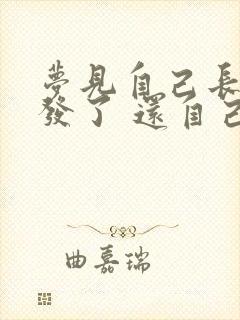 夢見自己長
發了 還自己
曲嘉瑞